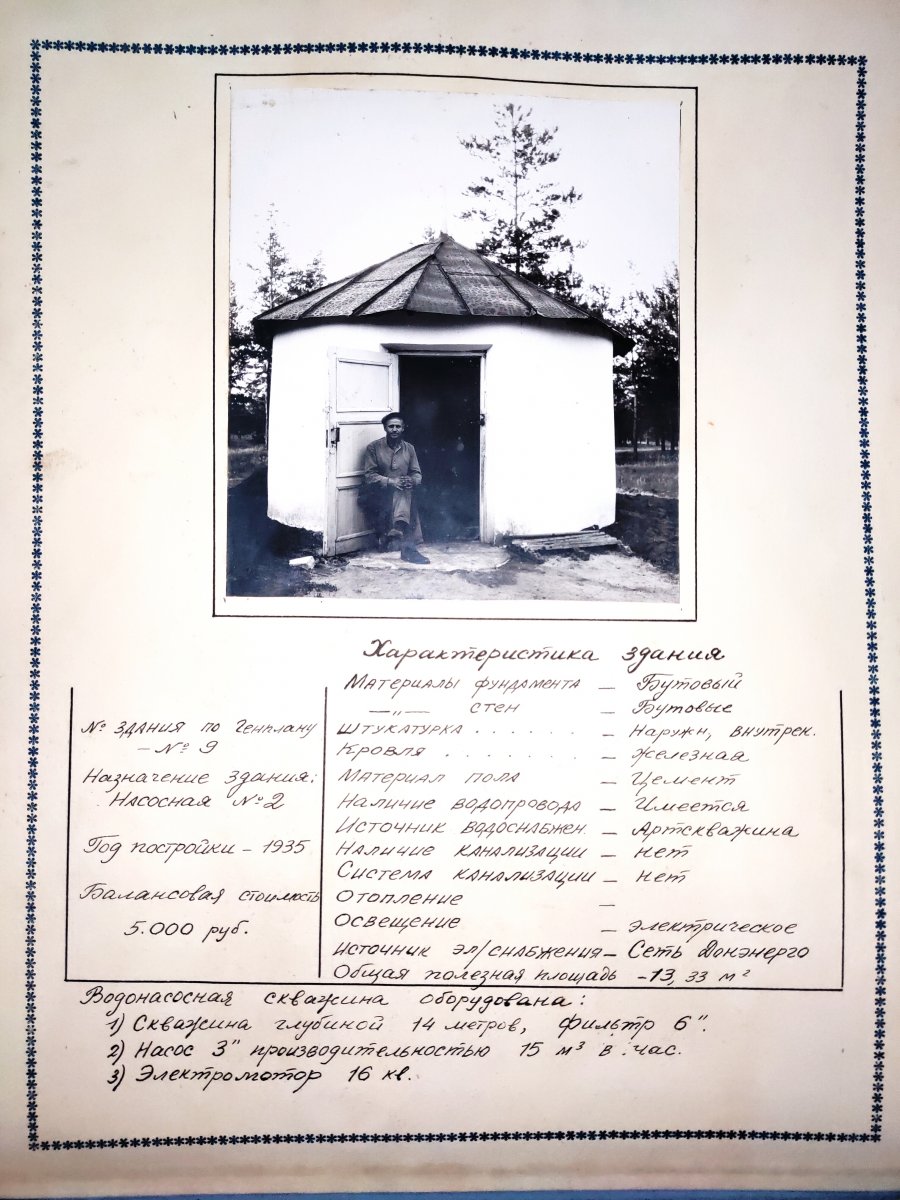 Характеристика здания
№ здания по Генплану
– № 9
Назначение здания:
Насосная № 2
Год постройки – 1935
Балансовая стоимость
5.000 руб.
Материалы фундамента – Бутовый
—„— стен – Бутовые
Штукатурка . . . . . . – Наружн, внутрен.
Кровля . . . . . . . – Железная
Материал пола – Цемент
Наличие водопровода – Имеется
Источник водоснабжен. – Артскважина
Наличие канализации – нет
Система канализации – нет
Отопление –
Освещение – электрическое
Источник эл/снабжения – Сеть Донэнерго
Общая полезная площадь – 13,33 м²
Водонасосная скважина оборудована:
1) Скважина глубиной 14 метров, фильтр 6".
2) Насос 3" производительностью 15 м³ в час.
3) Электромотор 16 кв.